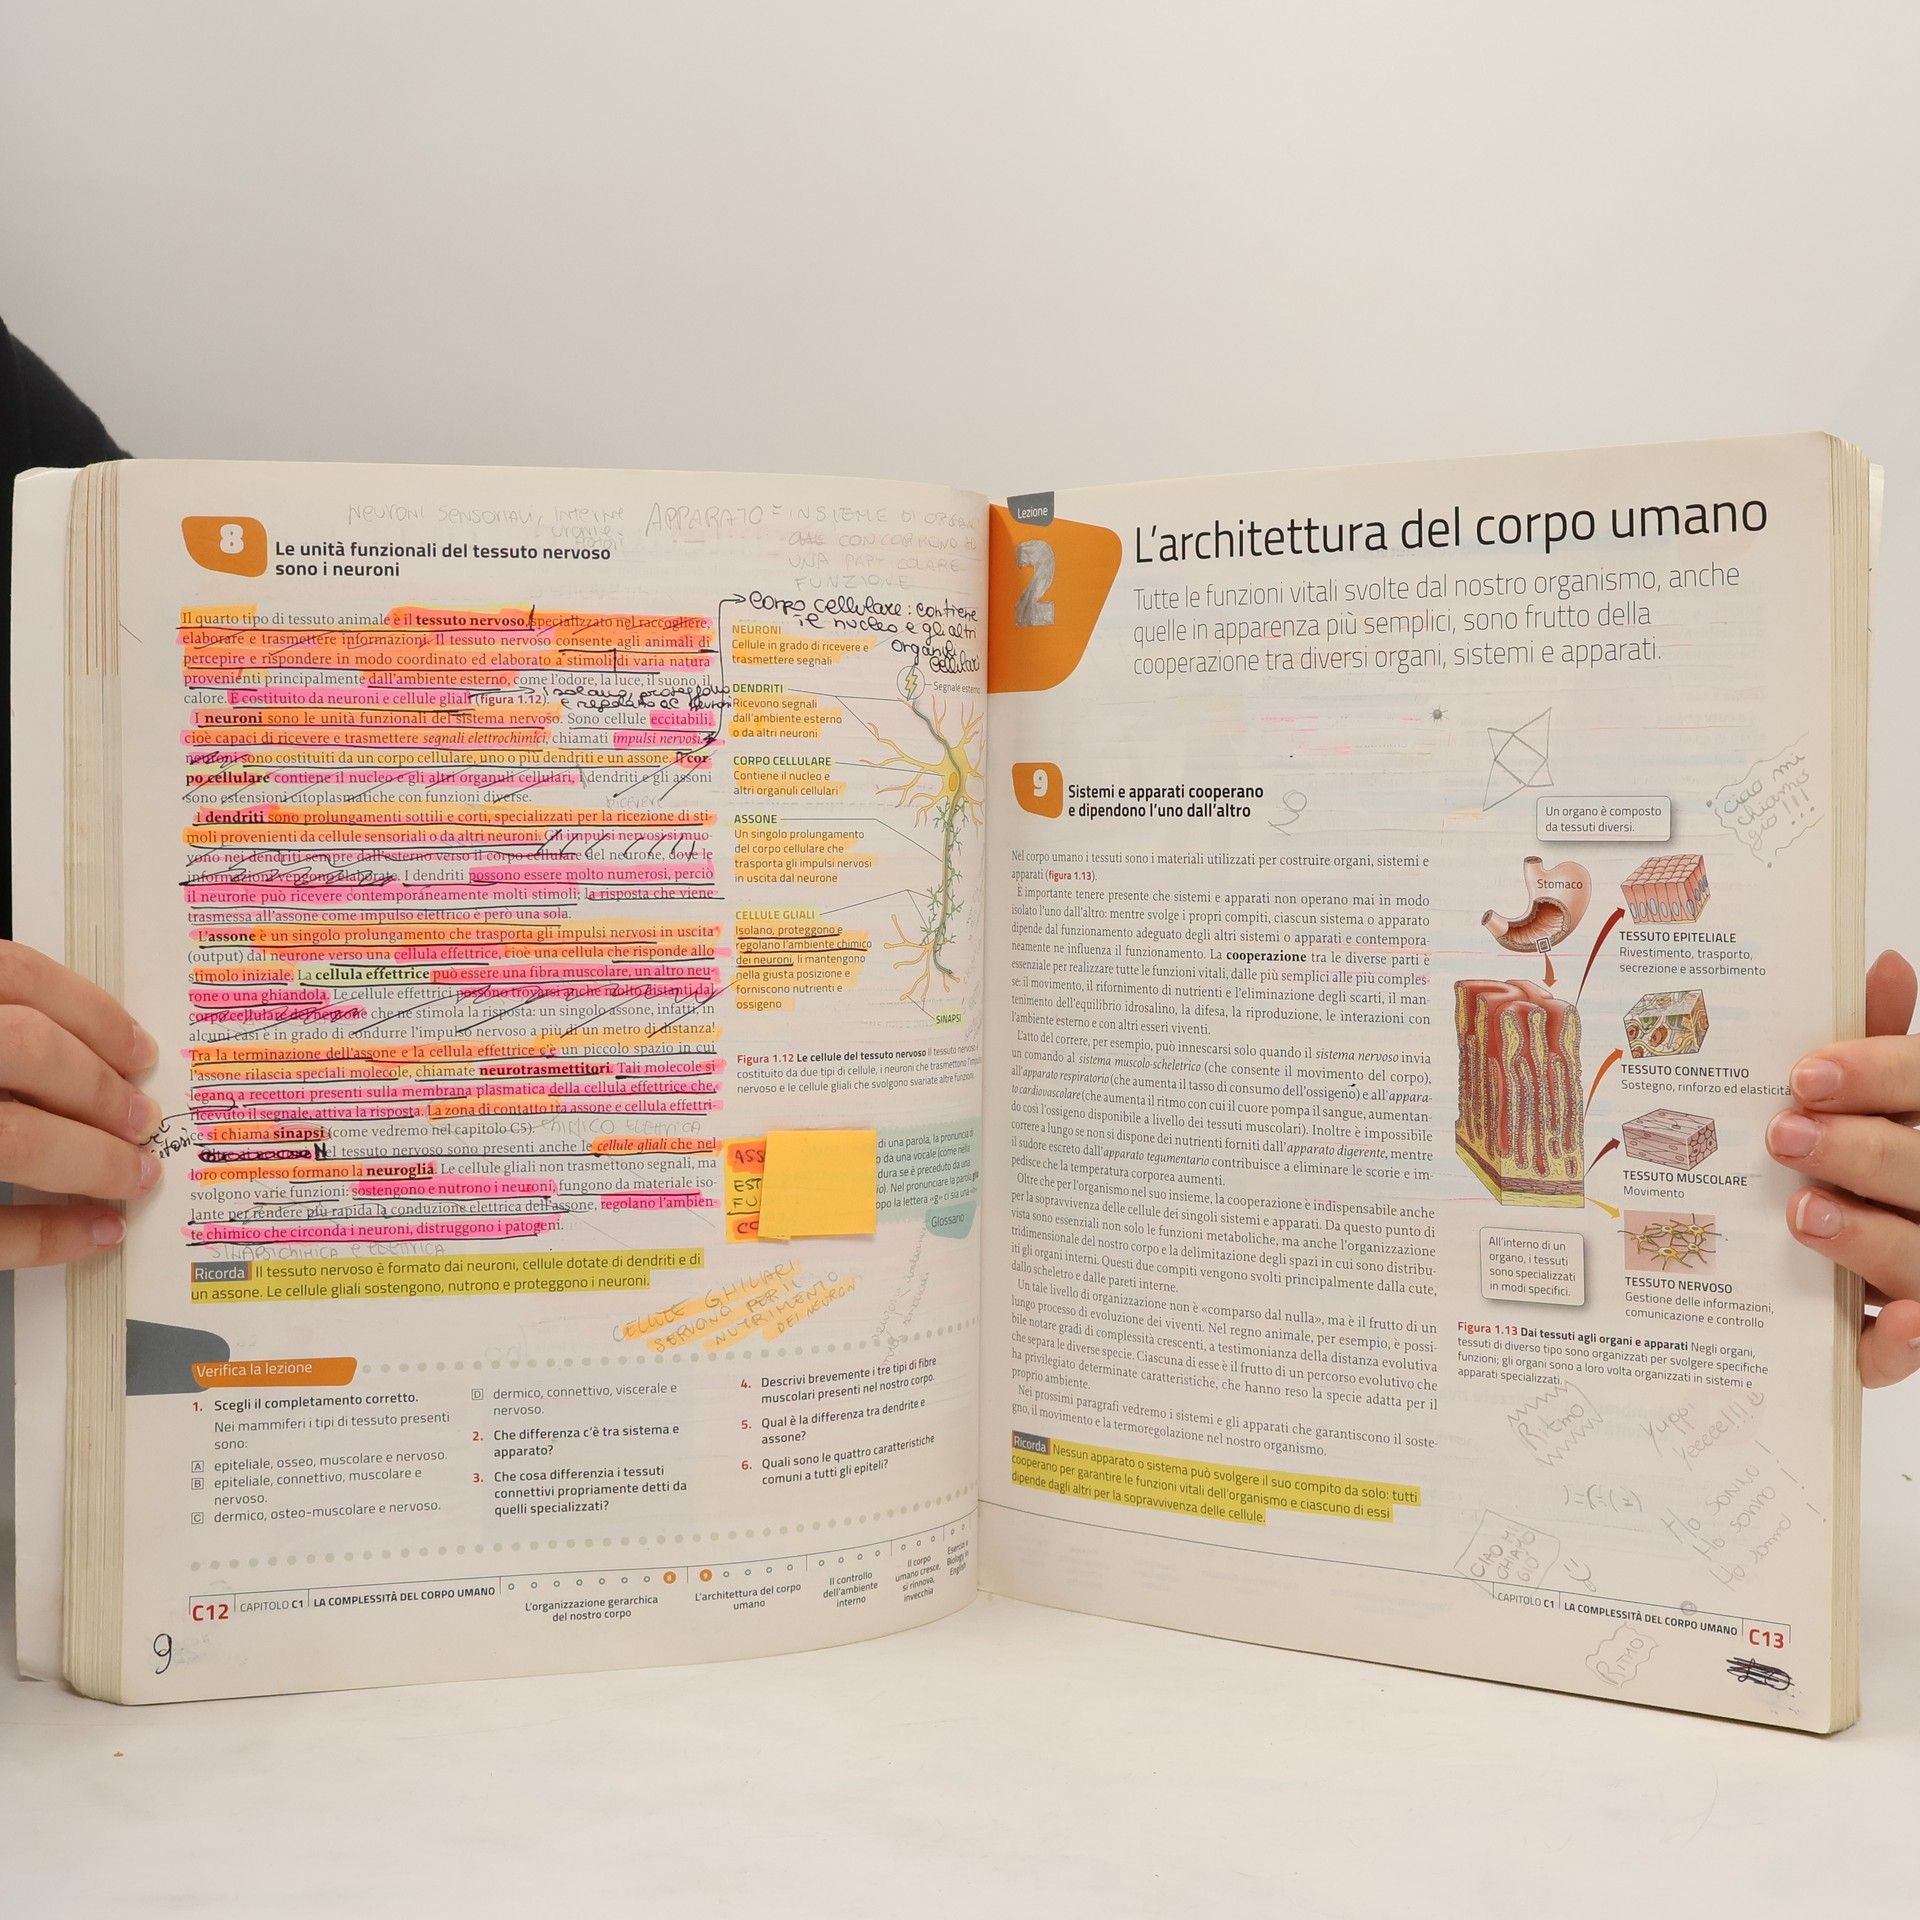 NEURONI SENSORIALI, INTERNE
APPARATO = INSIEME DI ORGANI
CHE CONCORRONO AD
UNA PARTICOLARE
FUNZIONE
8
Le unità funzionali del tessuto nervoso
sono i neuroni
Il quarto tipo di tessuto animale è il tessuto nervoso, specializzato nel raccogliere,
elaborare e trasmettere informazioni. Il tessuto nervoso consente agli animali di
percepire e rispondere in modo coordinato ed elaborato a stimoli di varia natura
provenienti principalmente dall'ambiente esterno, come l'odore, la luce, il suono, il
calore. È costituito da neuroni e cellule gliali (figura 1.12).
isolano, proteggono
e regolano
I neuroni sono le unità funzionali del sistema nervoso. Sono cellule eccitabili,
cioè capaci di ricevere e trasmettere segnali elettrochimici, chiamati impulsi nervosi. I
neuroni sono costituiti da un corpo cellulare, uno o più dendriti e un assone. Il cor-
po cellulare contiene il nucleo e gli altri organuli cellulari, i dendriti e gli assoni
sono estensioni citoplasmatiche con funzioni diverse.
ricevere
I dendriti sono prolungamenti sottili e corti, specializzati per la ricezione di sti-
moli provenienti da cellule sensoriali o da altri neuroni. Gli impulsi nervosi si muo-
vono nei dendriti sempre dall'esterno verso il corpo cellulare del neurone, dove le
informazioni vengono elaborate. I dendriti possono essere molto numerosi, perciò
il neurone può ricevere contemporaneamente molti stimoli: la risposta che viene
trasmessa all'assone come impulso elettrico è però una sola.
L'assone è un singolo prolungamento che trasporta gli impulsi nervosi in uscita
(output) dal neurone verso una cellula effettrice, cioè una cellula che risponde allo
stimolo iniziale. La cellula effettrice può essere una fibra muscolare, un altro neu-
rone o una ghiandola. Le cellule effettrici possono trovarsi anche molto distanti dal
corpo cellulare del neurone che ne stimola la risposta: un singolo assone, infatti, in
alcuni casi è in grado di condurre l'impulso nervoso a più di un metro di distanza!
Tra la terminazione dell'assone e la cellula effettrice c'è un piccolo spazio in cui
l'assone rilascia speciali molecole, chiamate neurotrasmettitori. Tali molecole si
legano a recettori presenti sulla membrana plasmatica della cellula effettrice che,
ricevuto il segnale, attiva la risposta. La zona di contatto tra assone e cellula effettri-
ce si chiama sinapsi (come vedremo nel capitolo C5).
CHIMICA ELETTRICA
Nel tessuto nervoso sono presenti anche le cellule gliali che nel
loro complesso formano la neuroglia. Le cellule gliali non trasmettono segnali, ma
svolgono varie funzioni: sostengono e nutrono i neuroni, fungono da materiale iso-
lante per rendere più rapida la conduzione elettrica dell'assone, regolano l'ambien-
te chimico che circonda i neuroni, distruggono i patogeni.
SINAPSI CHIMICA e ELETTRICA
Ricorda Il tessuto nervoso è formato dai neuroni, cellule dotate di dendriti e di
un assone. Le cellule gliali sostengono, nutrono e proteggono i neuroni.
Corpo cellulare: contiene
il nucleo e gli altri
organuli
cellulari
NEURONI
Cellule in grado di ricevere e
trasmettere segnali
Segnale esterno
DENDRITI
Ricevono segnali
dall'ambiente esterno
o da altri neuroni
CORPO CELLULARE
Contiene il nucleo e
altri organuli cellulari
ASSONE
Un singolo prolungamento
del corpo cellulare che
trasporta gli impulsi nervosi
in uscita dal neurone
CELLULE GLIALI
Isolano, proteggono e
regolano l'ambiente chimico
dei neuroni, li mantengono
nella giusta posizione e
forniscono nutrienti e
ossigeno
SINAPSI
Figura 1.12 Le cellule del tessuto nervoso Il tessuto nervoso è
costituito da due tipi di cellule, i neuroni che trasmettono l'impulso
nervoso e le cellule gliali che svolgono svariate altre funzioni.
ASS
EST
FU
CO
di una parola, la pronuncia di
da una vocale (come nella
dura se è preceduto da una
Nel pronunciare la parola glia
dopo la lettera «g» ci sia una
Glossario
CELLULE GHILIARI
SERVONO PER IL
NUTRIMENTO
DEI NEURON
Verifica la lezione
1. Scegli il completamento corretto.
Nei mammiferi i tipi di tessuto presenti
sono:
A epiteliale, osseo, muscolare e nervoso.
B epiteliale, connettivo, muscolare e
nervoso.
C dermico, osteo-muscolare e nervoso.
D dermico, connettivo, viscerale e
nervoso.
2. Che differenza c'è tra sistema e
apparato?
3. Che cosa differenzia i tessuti
connettivi propriamente detti da
quelli specializzati?
4. Descrivi brevemente i tre tipi di fibre
muscolari presenti nel nostro corpo.
5. Qual è la differenza tra dendrite e
assone?
6. Quali sono le quattro caratteristiche
comuni a tutti gli epiteli?
C12 CAPITOLO C1 LA COMPLESSITÀ DEL CORPO UMANO
8
9
L'organizzazione gerarchica
del nostro corpo
L'architettura del corpo
umano
Il controllo
dell'ambiente
interno
Il corpo
umano cresce,
si rinnova,
invecchia
Esercizi e
Biology in
English
9
Lezione
2
L'architettura del corpo umano
Tutte le funzioni vitali svolte dal nostro organismo, anche
quelle in apparenza più semplici, sono frutto della
cooperazione tra diversi organi, sistemi e apparati.
9
Sistemi e apparati cooperano
e dipendono l'uno dall'altro
Nel corpo umano i tessuti sono i materiali utilizzati per costruire organi, sistemi e
apparati (figura 1.13).
È importante tenere presente che sistemi e apparati non operano mai in modo
isolato l'uno dall'altro: mentre svolge i propri compiti, ciascun sistema o apparato
dipende dal funzionamento adeguato degli altri sistemi o apparati e contempora-
neamente ne influenza il funzionamento. La cooperazione tra le diverse parti è
essenziale per realizzare tutte le funzioni vitali, dalle più semplici alle più comples-
se: il movimento, il rifornimento di nutrienti e l'eliminazione degli scarti, il man-
tenimento dell'equilibrio idrosalino, la difesa, la riproduzione, le interazioni con
l'ambiente esterno e con altri esseri viventi.
L'atto del correre, per esempio, può innescarsi solo quando il sistema nervoso invia
un comando al sistema muscolo-scheletrico (che consente il movimento del corpo),
all'apparato respiratorio (che aumenta il tasso di consumo dell'ossigeno) e all'appara-
to cardiovascolare (che aumenta il ritmo con cui il cuore pompa il sangue, aumentan-
do così l'ossigeno disponibile a livello dei tessuti muscolari). Inoltre è impossibile
correre a lungo se non si dispone dei nutrienti forniti dall'apparato digerente, mentre
il sudore escreto dall'apparato tegumentario contribuisce a eliminare le scorie e im-
pedisce che la temperatura corporea aumenti.
Oltre che per l'organismo nel suo insieme, la cooperazione è indispensabile anche
per la sopravvivenza delle cellule dei singoli sistemi e apparati. Da questo punto di
vista sono essenziali non solo le funzioni metaboliche, ma anche l'organizzazione
tridimensionale del nostro corpo e la delimitazione degli spazi in cui sono distribu-
iti gli organi interni. Questi due compiti vengono svolti principalmente dalla cute,
dallo scheletro e dalle pareti interne.
Un tale livello di organizzazione non è «comparso dal nulla», ma è il frutto di un
lungo processo di evoluzione dei viventi. Nel regno animale, per esempio, è possi-
bile notare gradi di complessità crescenti, a testimonianza della distanza evolutiva
che separa le diverse specie. Ciascuna di esse è il frutto di un percorso evolutivo che
ha privilegiato determinate caratteristiche, che hanno reso la specie adatta per il
proprio ambiente.
Nei prossimi paragrafi vedremo i sistemi e gli apparati che garantiscono il soste-
gno, il movimento e la termoregolazione nel nostro organismo.
Ricorda Nessun apparato o sistema può svolgere il suo compito da solo: tutti
cooperano per garantire le funzioni vitali dell'organismo e ciascuno di essi
dipende dagli altri per la sopravvivenza delle cellule.
ciao mi
chiamo
giò!!!
Un organo è composto
da tessuti diversi.
Stomaco
TESSUTO EPITELIALE
Rivestimento, trasporto,
secrezione e assorbimento
TESSUTO CONNETTIVO
Sostegno, rinforzo ed elasticità
TESSUTO MUSCOLARE
Movimento
All'interno di un
organo, i tessuti
sono specializzati
in modi specifici.
TESSUTO NERVOSO
Gestione delle informazioni,
comunicazione e controllo
Figura 1.13 Dai tessuti agli organi e apparati Negli organi,
tessuti di diverso tipo sono organizzati per svolgere specifiche
funzioni; gli organi sono a loro volta organizzati in sistemi e
apparati specializzati.
Ritmo
Yuppi
Yeeeee!!!
Ho SONNO!
Ho sonno!
Ho sonno!
CIAO MI
CHIAMO
GIO'
CAPITOLO C1 LA COMPLESSITÀ DEL CORPO UMANO C13
RITMO